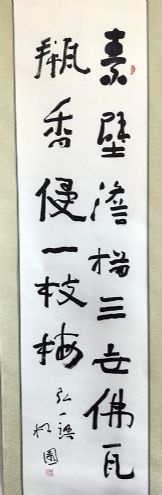 素壁澹描三世佛瓦
瓶香侵一枝梅
弘一
園